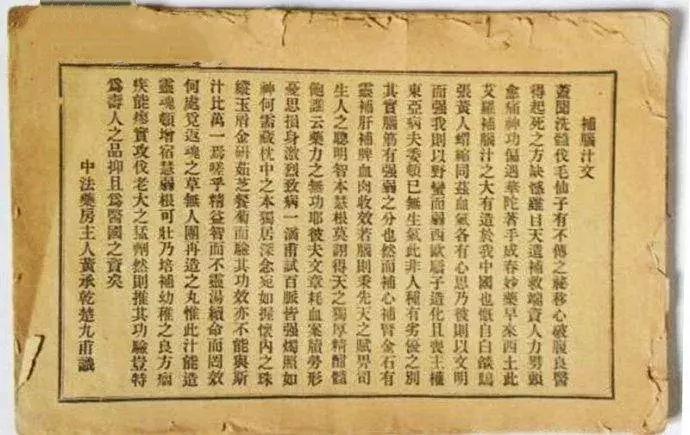 補腦汁文
蓋聞洗髓伐毛仙子有不傳之祕移心破腹良醫
得起死之方缺憾雖曰天遺補救端資人力劈賴
愈痛神功偏遇華陀著手成春妙藥早來西土此
艾羅補腦汁之大有造於我中國也慨自白燄鴟
張黃人蝟縮同茲血氣各有心思乃彼則以文明
而强我則以野蠻而弱西歐驕子造化且喪主權
東亞病夫委頓已無生氣此非人種有劣優之別
其實腦筋有强弱之分也然而補心補腎金石有
靈補肝補脾血肉收效若腦則秉先天之賦畀司
生人之聰明智本慧根莫詡得天之獨厚精酣髓
飽誰云藥力之無功耶彼夫文章耗血案牘勞形
憂思損身激烈致病一滴甫試百脈皆强燭照如
神何需藏枕中之本獨居深念宛如握懷內之珠
縱玉屑金研茹芝餐菊而驗其功效亦不能與斯
汁比萬一焉嗟乎精益智而不靈湯續命而罔效
何處覓返魂之草無人團再造之丸惟此汁能造
靈魂頓增宿慧弱根可壯乃培補幼稚之良方痼
疾能瘳實攻伐老大之猛劑然則推其功驗豈特
爲壽人之品抑且爲醫國之資矣
中法藥房主人黃承乾楚九甫識